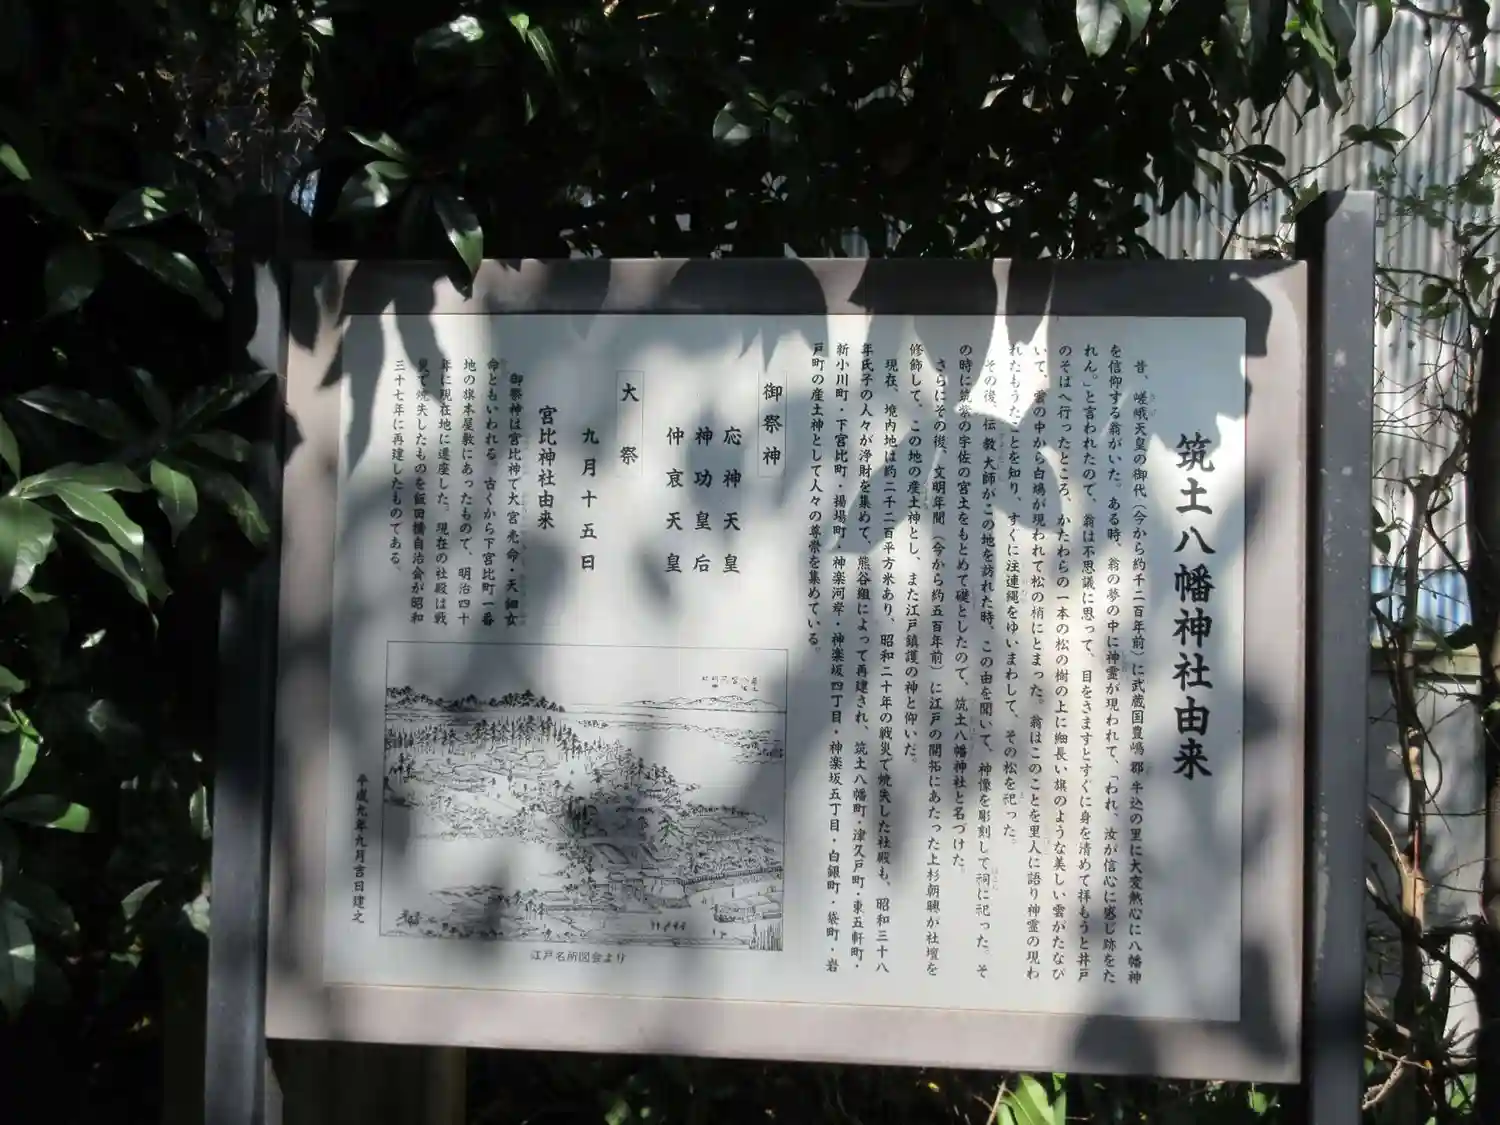 筑土八幡神社由来
昔、嵯峨天皇の御代（今から約千二百年前）に武蔵国豊嶋郡牛込の里に大変熱心に八幡神
を信仰する翁がいた。ある時、翁の夢の中に神霊が現われて、「われ、汝が信心に感じ跡をた
れん。」と言われたので、翁は不思議に思って、目をさますとすぐに身を清めて拝もうと井戸
のそばへ行ったところ、かたわらの一本の松の樹の上に細長い旗のような美しい雲がたなび
いて、雲の中から白鳩が現われて松の梢にとまった。翁はこのことを里人に語り神霊の現わ
れたもうたことを知り、すぐに注連縄をゆいまわして、その松を祀った。
その後、伝教大師がこの地を訪れた時、この由を聞いて、神像を彫刻して祠に祀った。そ
の時に筑紫の宇佐の宮土をもとめて礎としたので、筑土八幡神社と名づけた。
さらにその後、文明年間（今から約五百年前）に江戸の開拓にあたった上杉朝興が社壇を
修飾して、この地の産土神とし、また江戸鎮護の神と仰いだ。
現在、境内地は約二千二百平方米あり、昭和二十年の戦災で焼失した社殿も、昭和三十八
年氏子の人々が浄財を集めて、熊谷組によって再建され、筑土八幡町・津久戸町・東五軒町・
新小川町・下宮比町・揚場町・神楽河岸・神楽坂四丁目・神楽坂五丁目・白銀町・袋町・岩
戸町の産土神として人々の尊崇を集めている。
御祭神
応神天皇
神功皇后
仲哀天皇
大祭
九月十五日
宮比神社由来
御祭神は宮比神で大宮売命・天鈿女
命ともいわれる。古くから下宮比町一番
地の旗本屋敷にあったもので、明治四十
年に現在地に遷座した。現在の社殿は戦
災で焼失したものを飯田橋自治会が昭和
三十七年に再建したものである。
江戸名所図会より
平成九年九月吉日建之